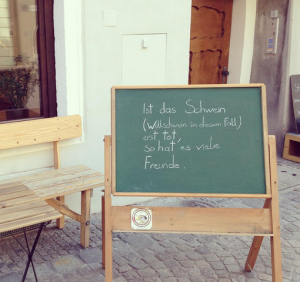 Ist das Schwein
(Wildschwein in diesem Fall)
erst tot,
so hat´es viele
Freunde.